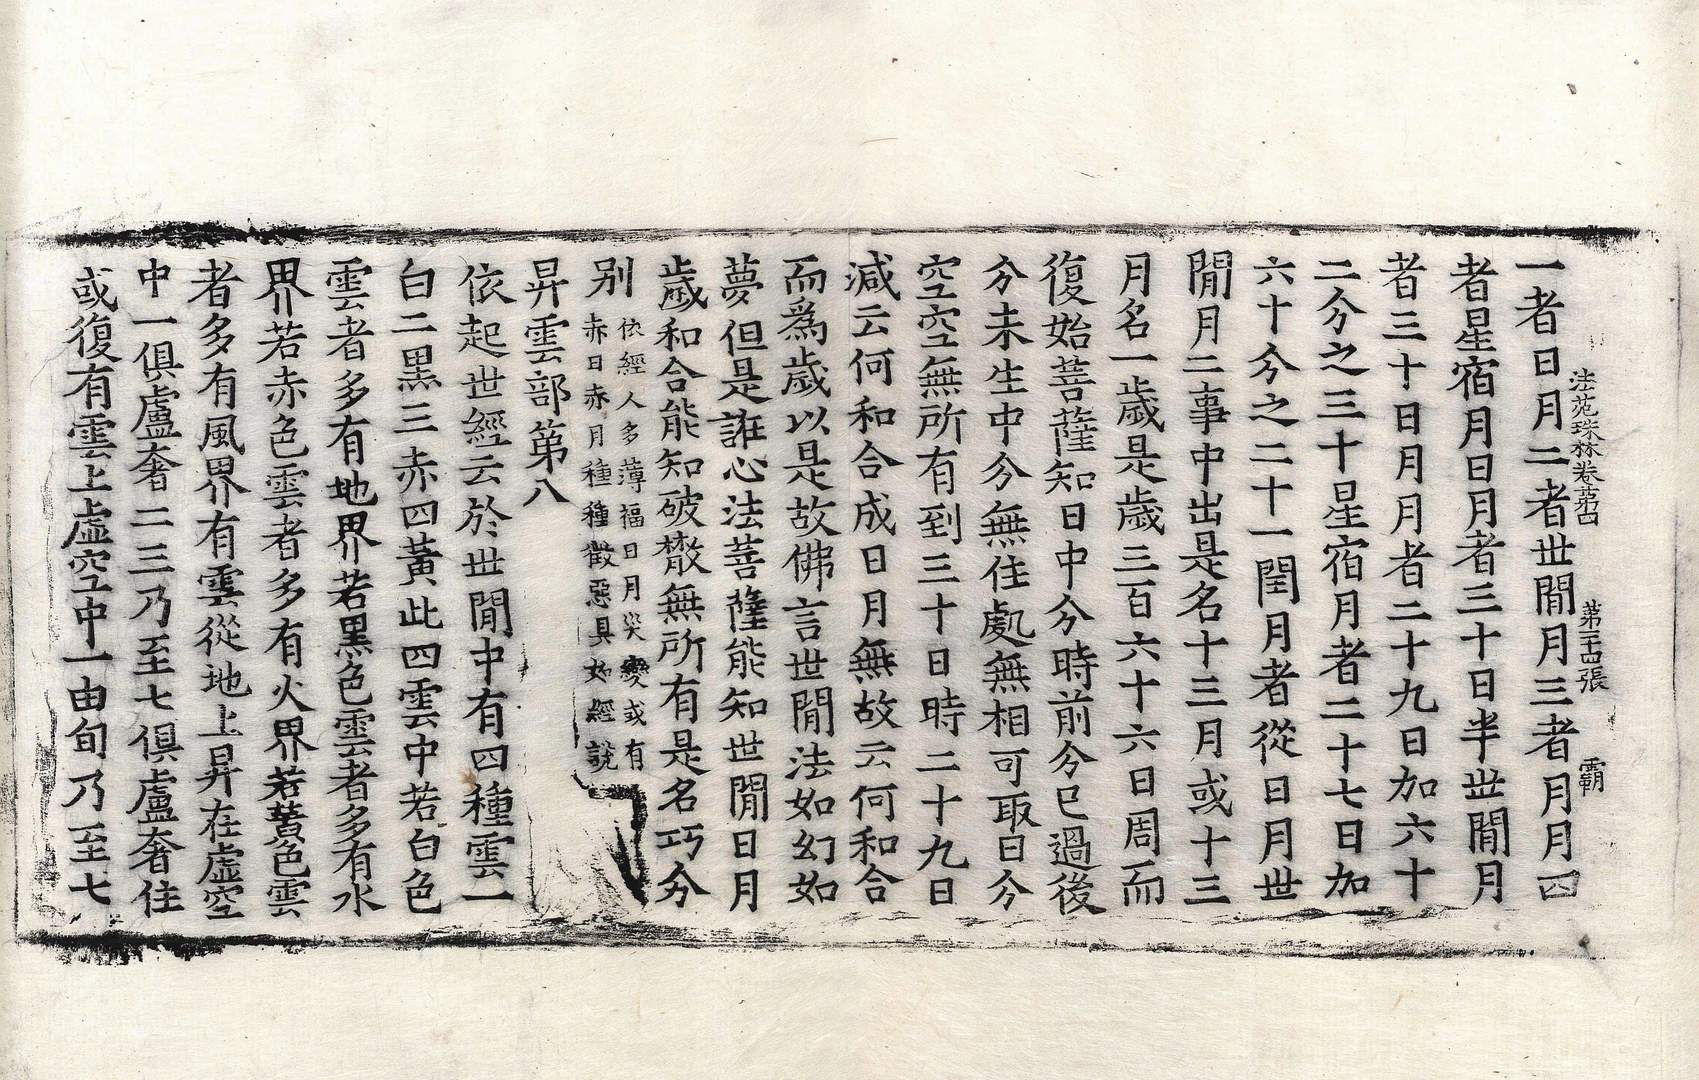 法苑珠林卷第四 第二十四張 霸
一者日月二者世閒月三者月月四
者星宿月日月者三十日半世閒月
者三十日月月者二十九日加六十
二分之三十星宿月者二十七日加
六十分之二十一閏月者從日月世
閒月二事中出是名十三月或十三
月名一歲是歲三百六十六日周而
復始菩薩知日中分時前分已過後
分未生中分無住處無相可取日分
空空無所有到三十日時二十九日
減云何和合成日月無故云何和合
而爲歲以是故佛言世閒法如幻如
夢但是誑心法菩薩能知世閒日月
歲和合能知破散無所有是名巧分
別 依經人多薄福日月灾變或有
赤日赤月種種徵惡具如經說
昇雲部第八
依起世經云於世閒中有四種雲一
白二黑三赤四黃此四雲中若白色
雲者多有地界若黑色雲者多有水
界若赤色雲者多有火界若黃色雲
者多有風界有雲從地上昇在虛空
中一俱盧奢二三乃至七俱盧奢住
或復有雲上虛空中一由旬乃至七